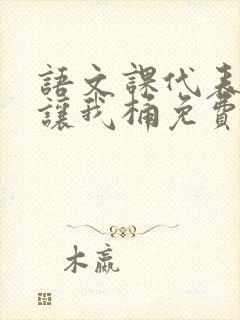 語文課代表
讓我桶免費
木贏